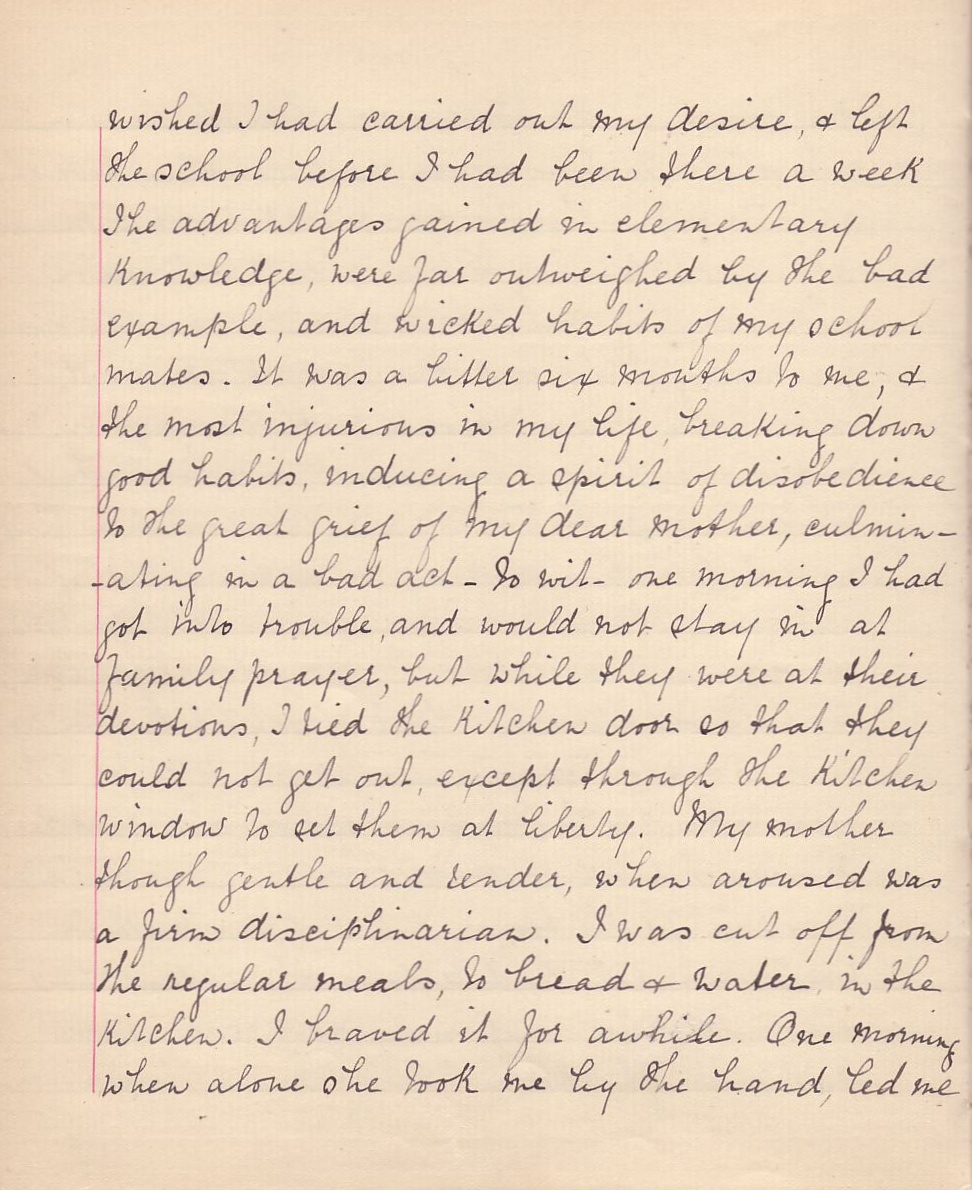 wished I had carried out my desire, & left
the school before I had been there a week
The advantages gained in elementary
Knowledge, were far outweighed by the bad
example, and wicked habits of my school
mates. It was a bitter six months to me, &
the most injurious in my life, breaking down
good habits, inducing a spirit of disobedience
to the great grief of my dear mother, culmin-
-ating in a bad act - to wit - one morning I had
got into trouble, and would not stay in at
family prayer, but while they were at their
devotions, I tied the Kitchen door so that they
could not get out, except through the Kitchen
window to set them at liberty. My mother
though gentle and tender, when aroused was
a firm disciplinarian. I was cut off from
the regular meals, to bread & water, in the
Kitchen. I braved it for awhile. One morning
when alone she took me by the hand, led me